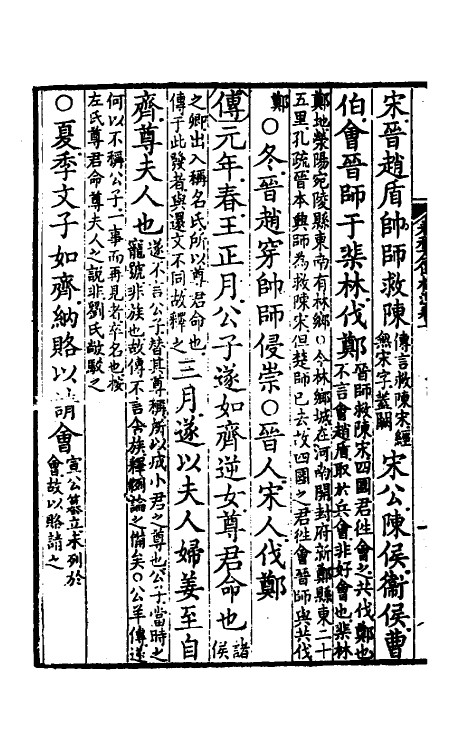 宋晉趙盾帥師救陳傳言救陳宋經無宋字蓋闕宋公陳侯衛侯曹
伯會晉師于棐林伐鄭晉師救陳宋四國君往會之共伐鄭也不言會趙盾取於兵會非好會也棐林
鄭地滎陽宛陵縣東南有林鄉○今林鄉城在河南開封府新鄭縣東二十五里孔疏晉本興師為救陳宋但楚師已去故四國之君往會晉師與共伐
鄭○冬晉趙穿帥師侵崇○晉人宋人伐鄭
傳元年春王正月公子遂如齊逆女尊君命也諸侯
之卿出入稱名氏所以尊君命也傳于此發者與還文不同故釋之三月遂以夫人婦姜至自
齊尊夫人也遂不言公子替其尊稱所以成小君之尊也公子當時之寵號非族也故傳不言舍族釋例論之備矣○公羊傳遂
何以不稱公子一事而再見者卒名也按左氏尊君命尊夫人之說非劉氏敞駁之
○夏季文子如齊納賂以請會宣公篡立未列於會故以賂請之